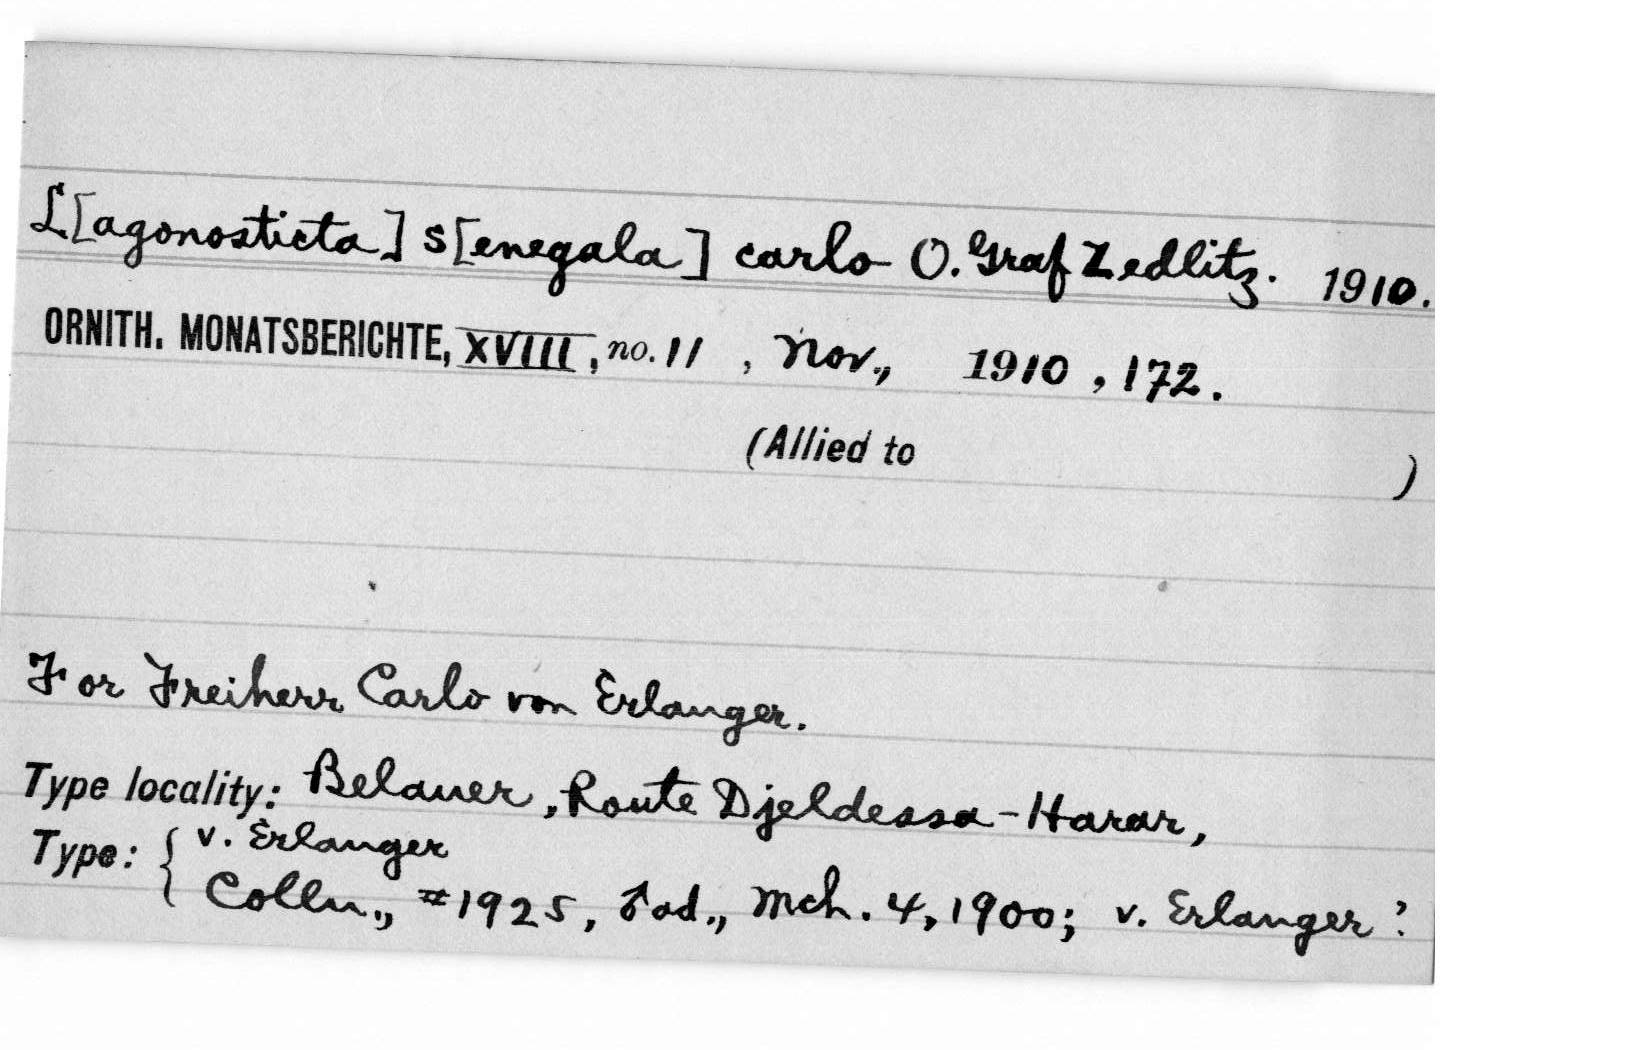 L[agonosticta] s[enegala] carlo O. Graf Zedlitz. 1910.
ORNITH. MONATSBERICHTE, XVIII, no. 11, Nov., 1910, 172.
(Allied to )
For Freiherr Carlo von Erlanger.
Type locality: Belauer, Route Djeldessa-Harar,
Type: { v. Erlanger
Colln., #1925, ♂ad., Mch. 4, 1900; v. Erlanger?